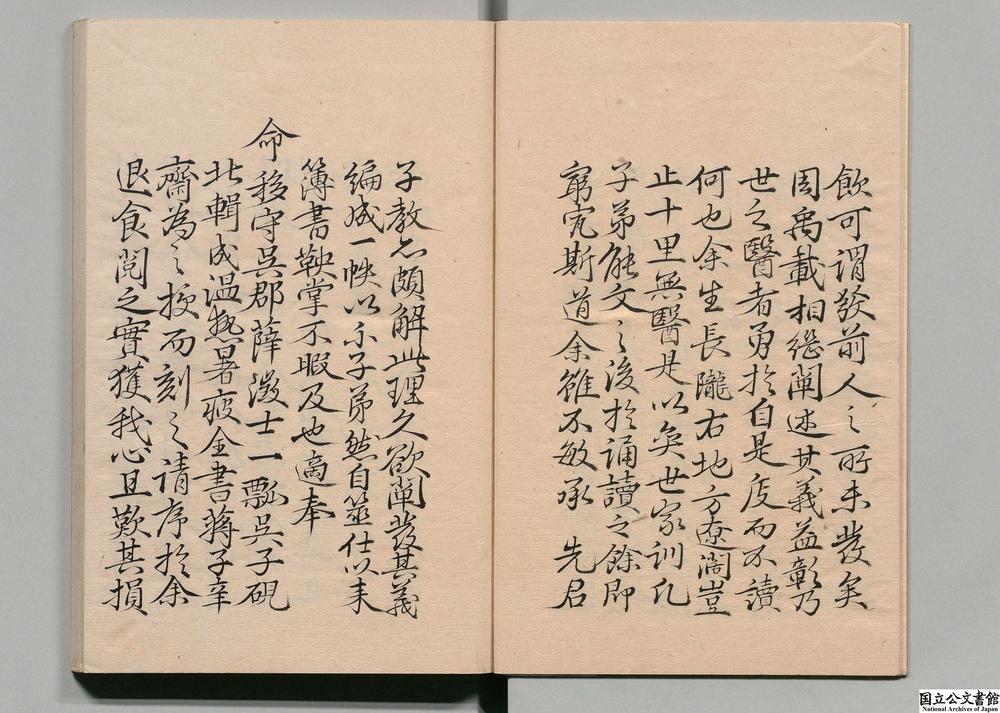 飲可謂發前人之所未發矣
周禹載相繼闡述其義益彰乃
世之醫者勇於自是廢而不讀
何也余生長隴右地方遼濶豈
止十里無醫是以矣世家訓凡
子弟能文之後於誦讀之餘即
窮究斯道余雖不敏承 先君
子教亦頗解此理久欲闡發其義
編成一帙以示子弟然自筮仕以来
簿書鞅掌不暇及也適奉
命移守吳郡薛徵士一瓢吳子硯
北輯成温熱暑疫全書蔣子辛
齋為之授而刻之請序於余
退食閲之實獲我心且歎其損
国立公文書館
National Archives of Japan